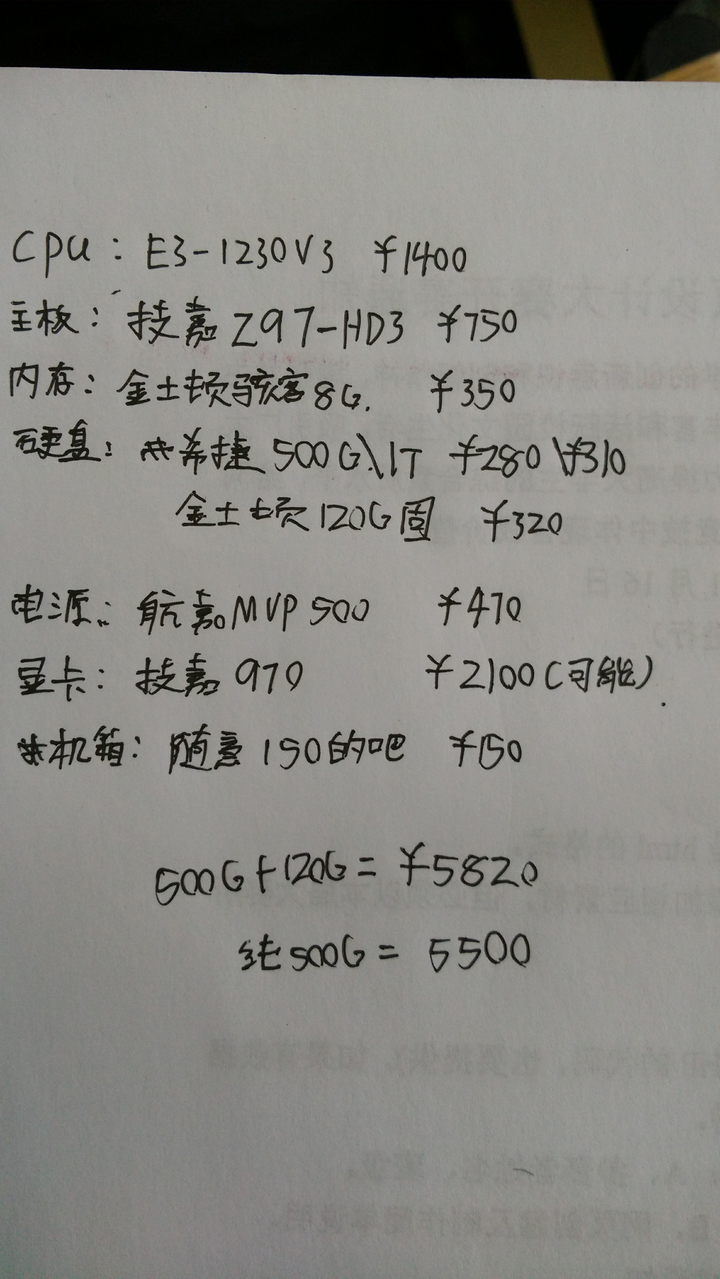 CPU: E3-1230V3 ¥1400
主板: 技嘉 Z97-HD3 ¥750
内存: 金士顿骇客8G. ¥350
硬盘: 希捷 500G\1T ¥280\¥310
金士顿120G固 ¥320
电源: 航嘉MVP 500 ¥470
显卡: 技嘉 970 ¥2100(可能).
机箱: 随意150的吧 ¥150
500G+120G= ¥5820
纯500G= 5500